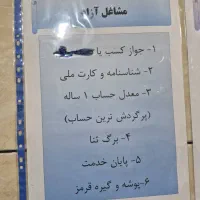 مشاغل آزاد
۱- جواز کسب یا
۲- شناسنامه و کارت ملی
۳- معدل حساب ۱ ساله
(پرگردش ترین حساب)
۴- برگ ثنا
۵- پایان خدمت
۶-پوشه و گیره قرمز